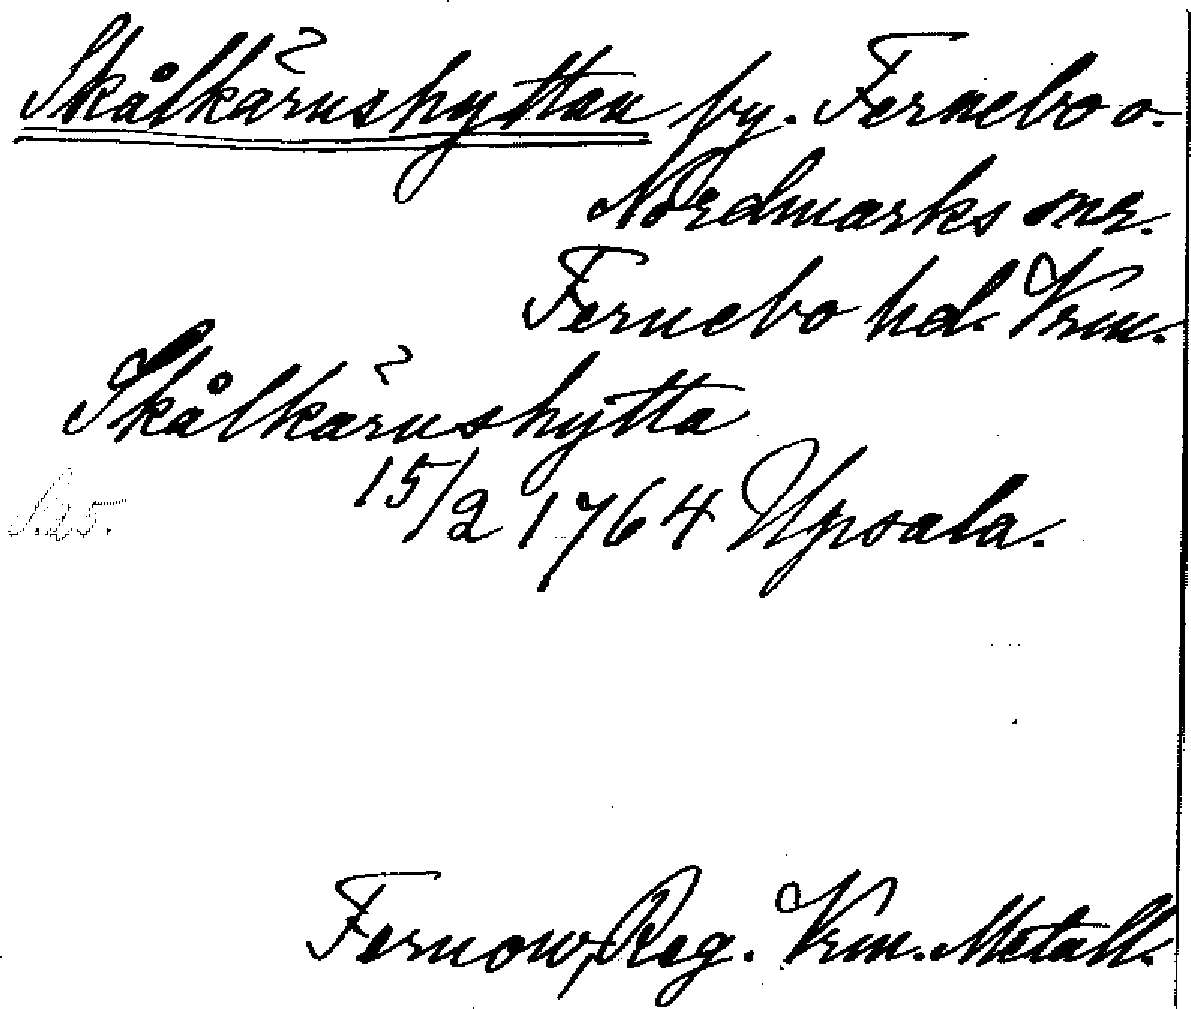 Skålkärnshyttan by. Fernebo o.
Nordmarks omr.
Fernebo hd. Vrm.
Skålkärnshytta
15/2 1764 Upsala.
Fernow, Reg. Vrm. Metall.